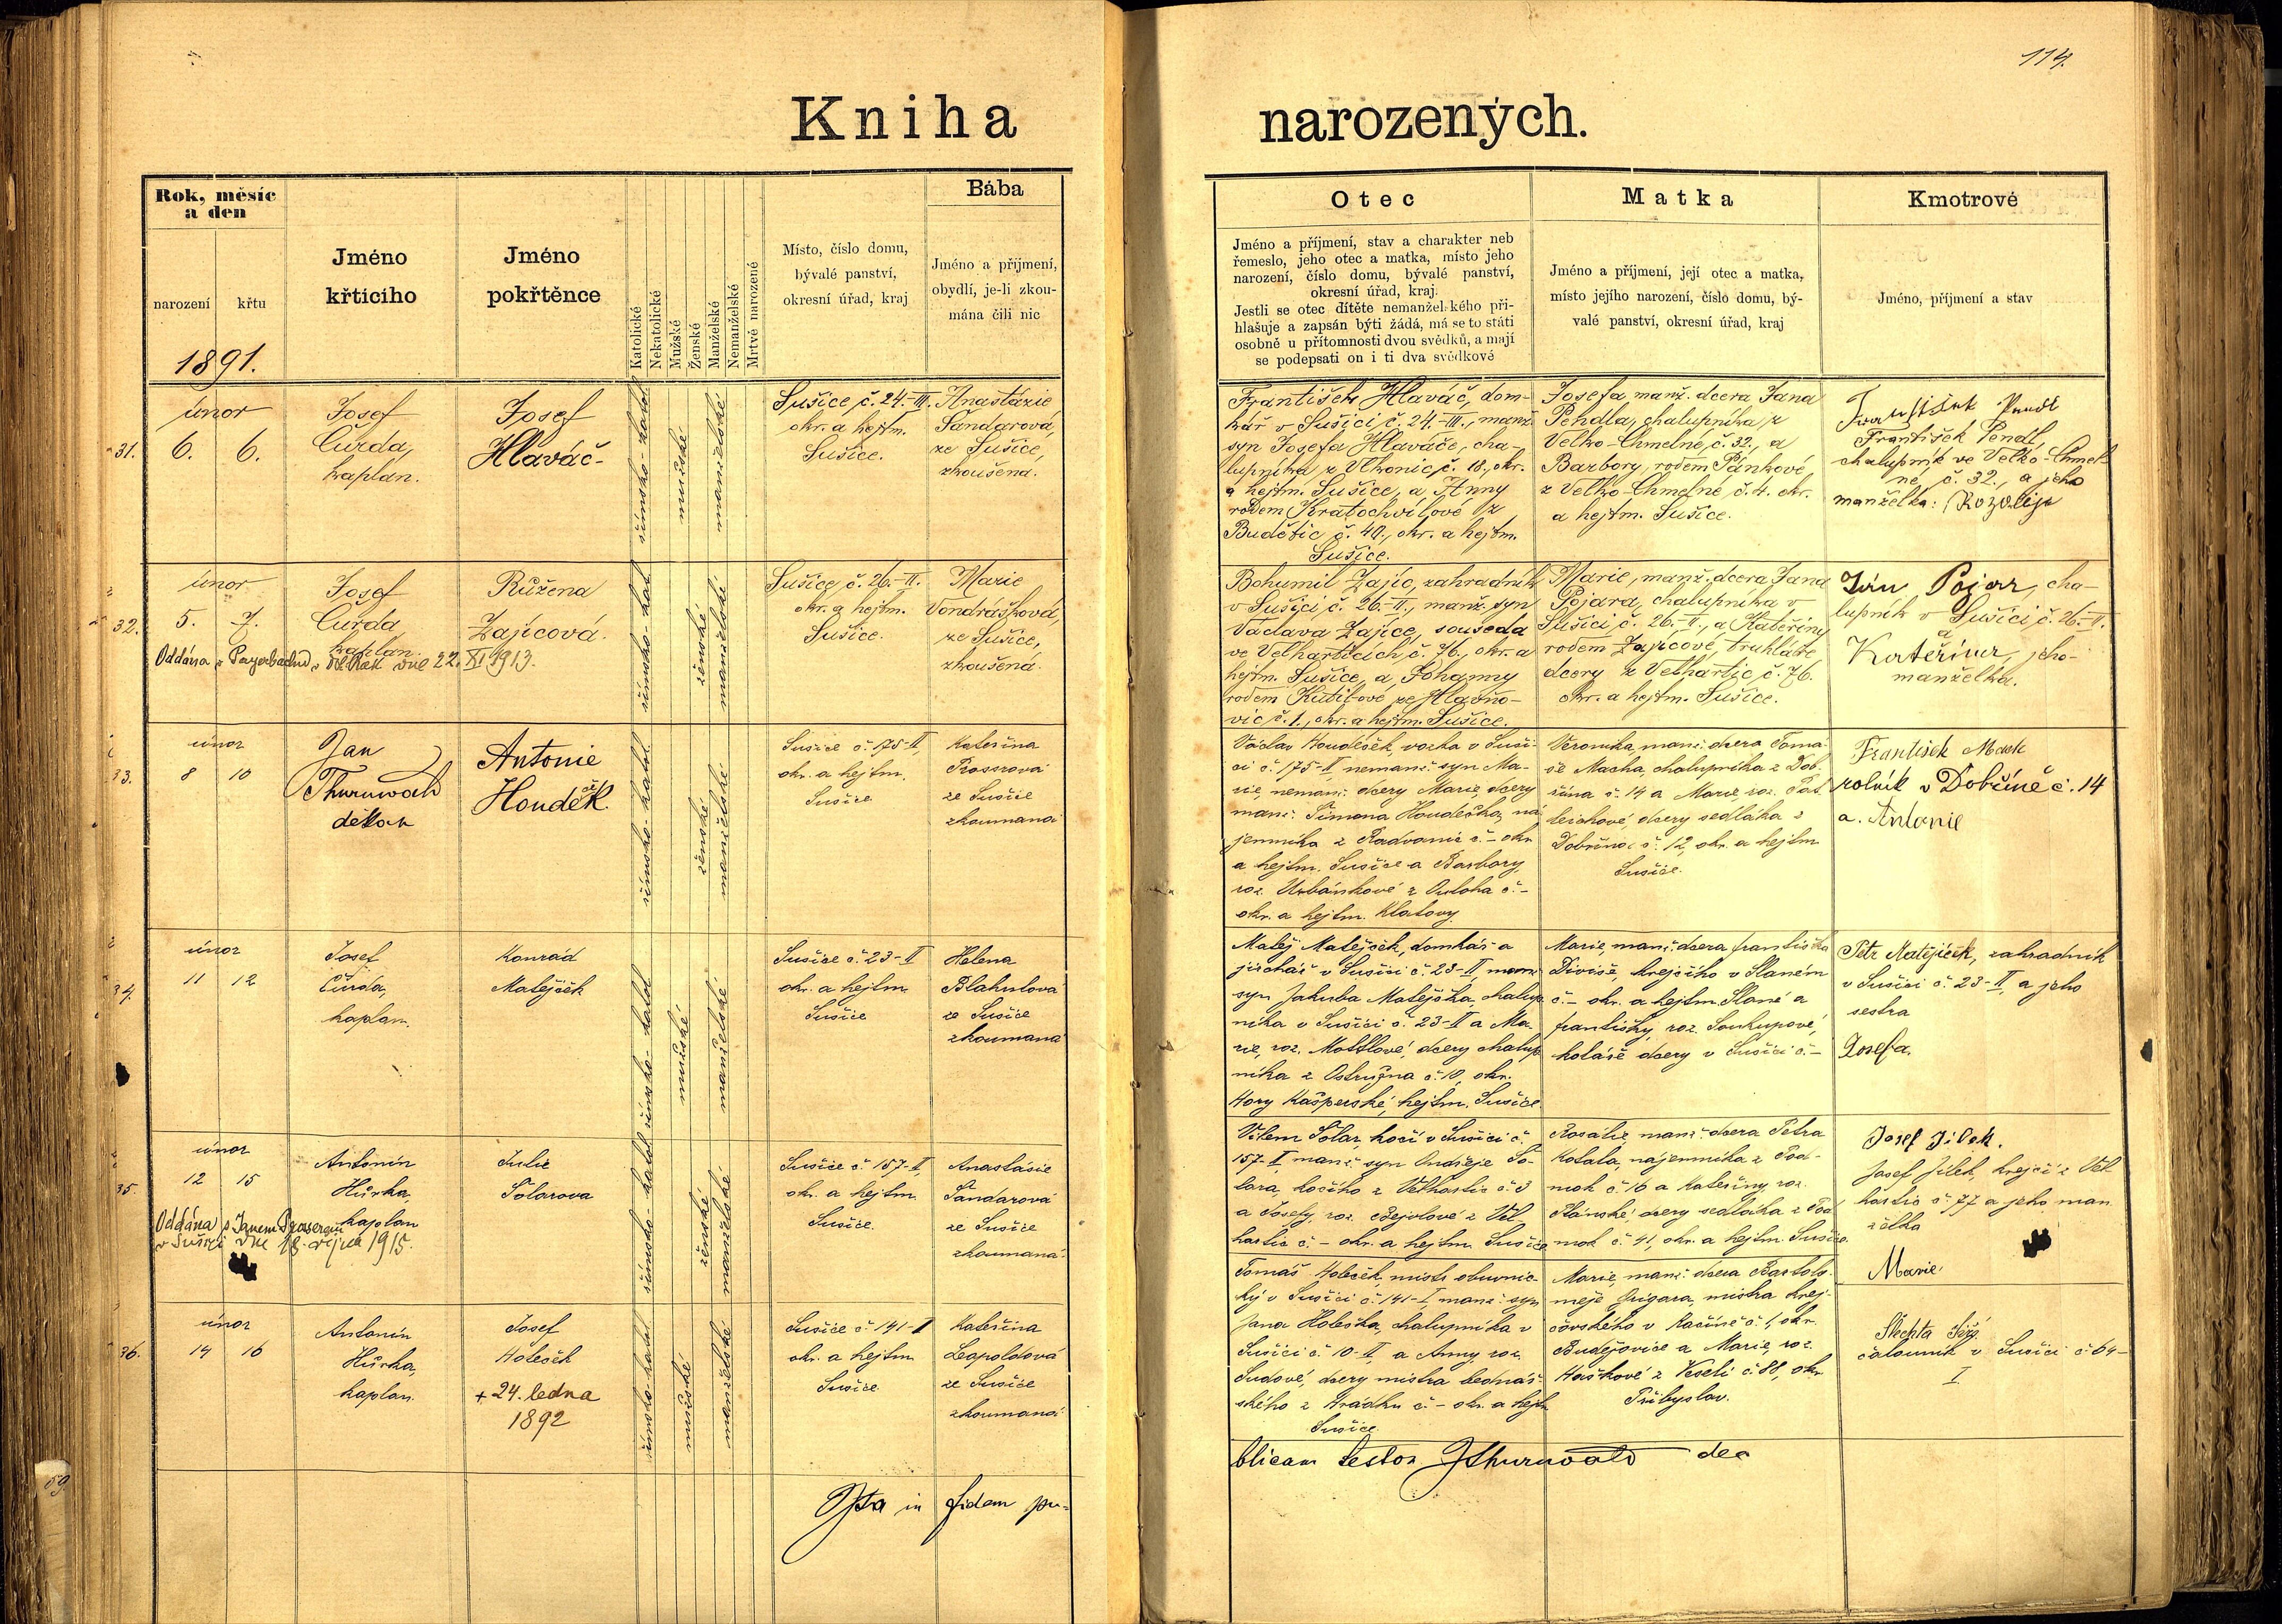 114.
Kniha narozených.
Rok, měsíc
a den
narození
křtu
1891.
Jméno
křtícího
Jméno
pokřtěnce
Katolické
Nekatolické
Mužské
Ženské
Manželské
Nemanželské
Mrtvě narozené
Místo, číslo domu,
bývalé panství,
okresní úřad, kraj
Bába
Jméno a příjmení,
obydlí, je-li zkou-
mána čili nic
Otec
Jméno a příjmení, stav a charakter neb
řemeslo, jeho otec a matka, místo jeho
narození, číslo domu, bývalé panství,
okresní úřad, kraj.
Jestli se otec dítěte nemanželského při-
hlašuje a zapsán býti žádá, má se to státi
osobně u přítomnosti dvou svědků, a mají
se podepsati on i ti dva svědkové
Matka
Jméno a příjmení, její otec a matka,
místo jejího narození, číslo domu, bý-
valé panství, okresní úřad, kraj
Kmotrové
Jméno, příjmení a stav
31.
únor
6. 6.
Josef
Čurda,
kaplan.
Josef
Hlaváč
římsko-katol
mužské
manželské
Sušice, č. 24.-III.
okr. a hejtm.
Sušice.
Anastázie
Šandarová,
ze Sušice,
zkoušená.
František Hlaváč, dom-
kář v Sušici č. 24.-III., manž.
syn Josefa Hlaváče, cha-
lupníka z Vlkonic č. 18., okr.
a hejtm. Sušice, a Anny
rodem Kratochvílové z
Budětic č. 40., okr. a hejtm.
Sušice.
Josefa, manž. dcera Jana
Pendla, chalupníka z
Velko-Chmelné, č. 32., a
Barbory, rodem Pánkové
z Velko-Chmelné č. 4. okr.
a hejtm. Sušice.
František Pendl
František Pendl,
chalupník ve Velko-Chmel-
né, č. 32., a jeho
manželka: Rozalije
32.
únor
5. 7.
Josef
Čurda,
kaplan.
Oddána v Payerbachu, dne 22. XI 1913.
Růžena
Zajícová.
římsko-kat.
ženské
manželské
Sušice, č. 26.-II.
okr. a hejtm.
Sušice.
Marie
Vondrášková,
ze Sušice,
zkoušená.
Bohumil Zajíc, zahradník
v Sušici, č. 26.-II., manž. syn
Václava Zajíce, souseda
ve Velharticích č. 76., okr. a
hejtm. Sušice, a Johanny
rodem Kutilové ze Hlavňo-
vic č. 1., okr. a hejtm. Sušice.
Marie, manž. dcera Jana
Pojara, chalupníka v
Sušici č. 26.-II., a Kateřiny
rodem Zajícové, truhláře
dcery z Velhartic č. 76.
okr. a hejtm. Sušice.
Ján Pojar, cha-
lupník v Sušici č. 26.-II.
a
Kateřina, jeho
manželka.
33.
únor
8 10
Jan
Thurnwald
děkan
Antonie
Houdek
římsko-katol.
ženské
manželské
Sušice č. 175-II,
okr. a hejtm.
Sušice
Kateřina
Prosrová
ze Sušice
zkoumaná
Václav Houdeček, vozka v Suši-
ci č. 175-II nemanž. syn Ma-
rie, nemanž. dcery Marie, dcery
manž. Šimona Houdečka, ná
jemníka z Radvanic č. - okr.
a hejtm. Sušice a Barbory,
roz. Urbánkové z Ouloha č. -
okr. a hejtm. Klatovy.
Veronika, manž. dcera Tomá-
še Macha, chalupníka z Dob-
řína č. 14 a Marie, roz.
dcery sedláka z
č. 12, okr. a hejtm
Sušice.
František Mach
rolník v Dobříně č. 14
a. Antonie
34.
únor
11 12
Josef
Čurda,
kaplan.
Konrád
Matějček
římsko-katol
mužské
manželské
Sušice č. 23-II
okr. a hejtm
Sušice
Helena
Blahutová
ze Sušice
zkoumaná
Matěj Matějček, domkář a
jirchář v Sušici č. 23-II, manž.
syn Jakuba Matějčka, chalup
níka v Sušici č. 23-II a Ma-
rie, roz. Mottlové, dcery chalup
níka z Ostružna č. 10, okr.
Hory Kašperské, hejtm. Sušice
Marie, manž. dcera Františka
Diviše, krejčího v Slaném
č. - okr. a hejtm. Slané a
Františky, roz. Soukupové,
koláře dcery v Sušici č. -
Petr Matějíček, zahradník
v Sušici č. 23-II, a jeho
sestra
Josefa.
35.
únor
12 15
Antonín
Hůrka,
kaplan
Oddána s Janem
v Sušici dne 18. října 1915.
Julie
Solarova
římsko-katol
ženské
manželské
Sušice č. 157-I,
okr. a hejtm
Sušice.
Anastasie
Šandarová
ze Sušice
zkoumaná
Vilem Solar, kočí v Sušici č.
157-I, manž. syn Ondřeje So-
lara, kočího z Velhartic č. 3
a Josefy, roz. z Vel-
hartic č. - okr. a hejtm. Sušice
Rosálie, manž. dcera Petra
Kotala, nájemníka z Pod-
mok č. 16 a Kateřiny, roz.
Plánské, dcery sedláka z Pod
mok č. 41, okr. a hejtm. Sušice
Josef Jílek.
Josef Jílek, krejčí z Vel
hartic č. 77 a jeho man
želka
Marie
36.
únor
14 16
Antonín
Hůrka,
kaplan.
Josef
Holeček
+ 24. ledna
1892
římsko-katol
mužské
manželské
Sušice č. 141-I
okr. a hejtm
Sušice
Kateřina
Leopoldová
ze Sušice
zkoumaná
Tomáš Holeček, mistr obuvnic-
ký v Sušici č. 141-I, manž. syn
Jana Holečka, chalupníka v
Sušici č. 10-II, a Anny, roz.
Sudové, dcery mistra bednář-
ského z Hrádku č. - okr. a hejtm
Sušice.
Marie, manž. dcera Bartolo-
měje Grigara, mistra krej-
čovského v Račíně č. 1, okr.
Budějovice a Marie, roz.
Haškové z Veselí č. 88, okr.
Přibyslav.
Šlechta
čalouník v Sušici č 64-
I
Ita in fidem pu-
blicam testor JThurnwald dec
59.